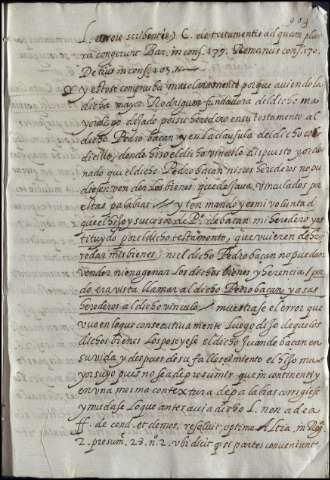 L. et verò scribentis. C. de testamentis ad quam plura
congerunt Bar. in cons. 179. Romanus cons. 170.
Decius in cons. 203.
Y esto se comprueba mas claramente porque auiendo la
dicha mayor Rodriguez fundadora del dicho ma
yorazgo dexado por su heredero en su testamento al
dicho Pedro bacan y en la clausula del dicho co
dicilio, donde hizo el dicho vinculo dispuso y orde
nado que el dicho Pedro bacan ni sus herederos no pu
diessen vender los bienes que dexaua vinculados por
estas palabras y ten mando y es mi voluntad
que el hijo y sucesor de Pº de bacan mi heredero yns
tituydo por el dicho testamento, que vuieren de he
redar mis bienes, ni el dicho Pedro bacan no puedan
vender ni enagenar los dichos bienes y herencia
era vista llamar al dicho Pedro bacan y a sus
herederos al dicho vinculo muestrase el error que
vuo en lo que consecutiuamente luego dijo de que los
dichos bienes los posseyese el dicho Juan de bacan en
su vida y despues de su fallescimiento el hijo ma
yor suyo pues no se a de presumir que in continenti y
en vna misma contextura de palabras corrigiese
y mudase lo que antes auia dicho L. non ad ea
ff. de cond. et demost. resoluit optime
2. presum. 23. n. 2. vbi dicit quod si partes conueniunt